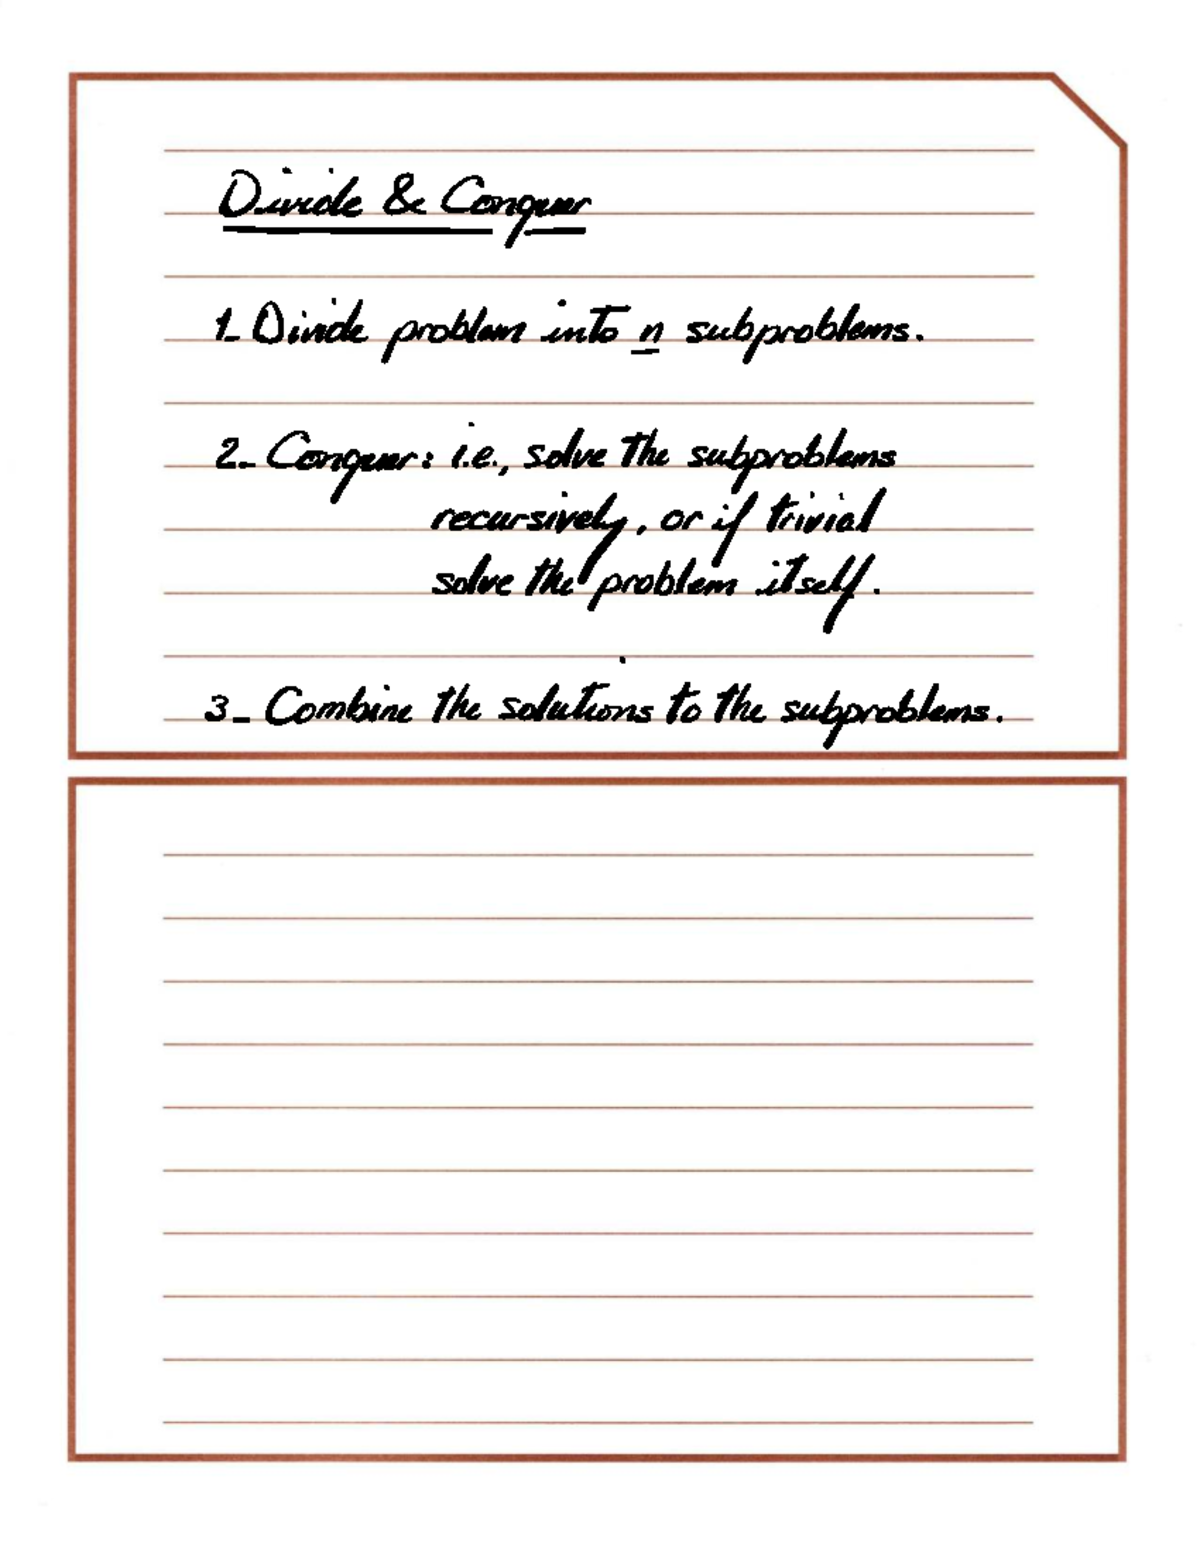 Divide & Conquer
1_ Divide problem into n subproblems.
2_ Conquer: i.e., solve the subproblems
recursively, or if trivial
solve the problem itself.
3_ Combine the solutions to the subproblems.